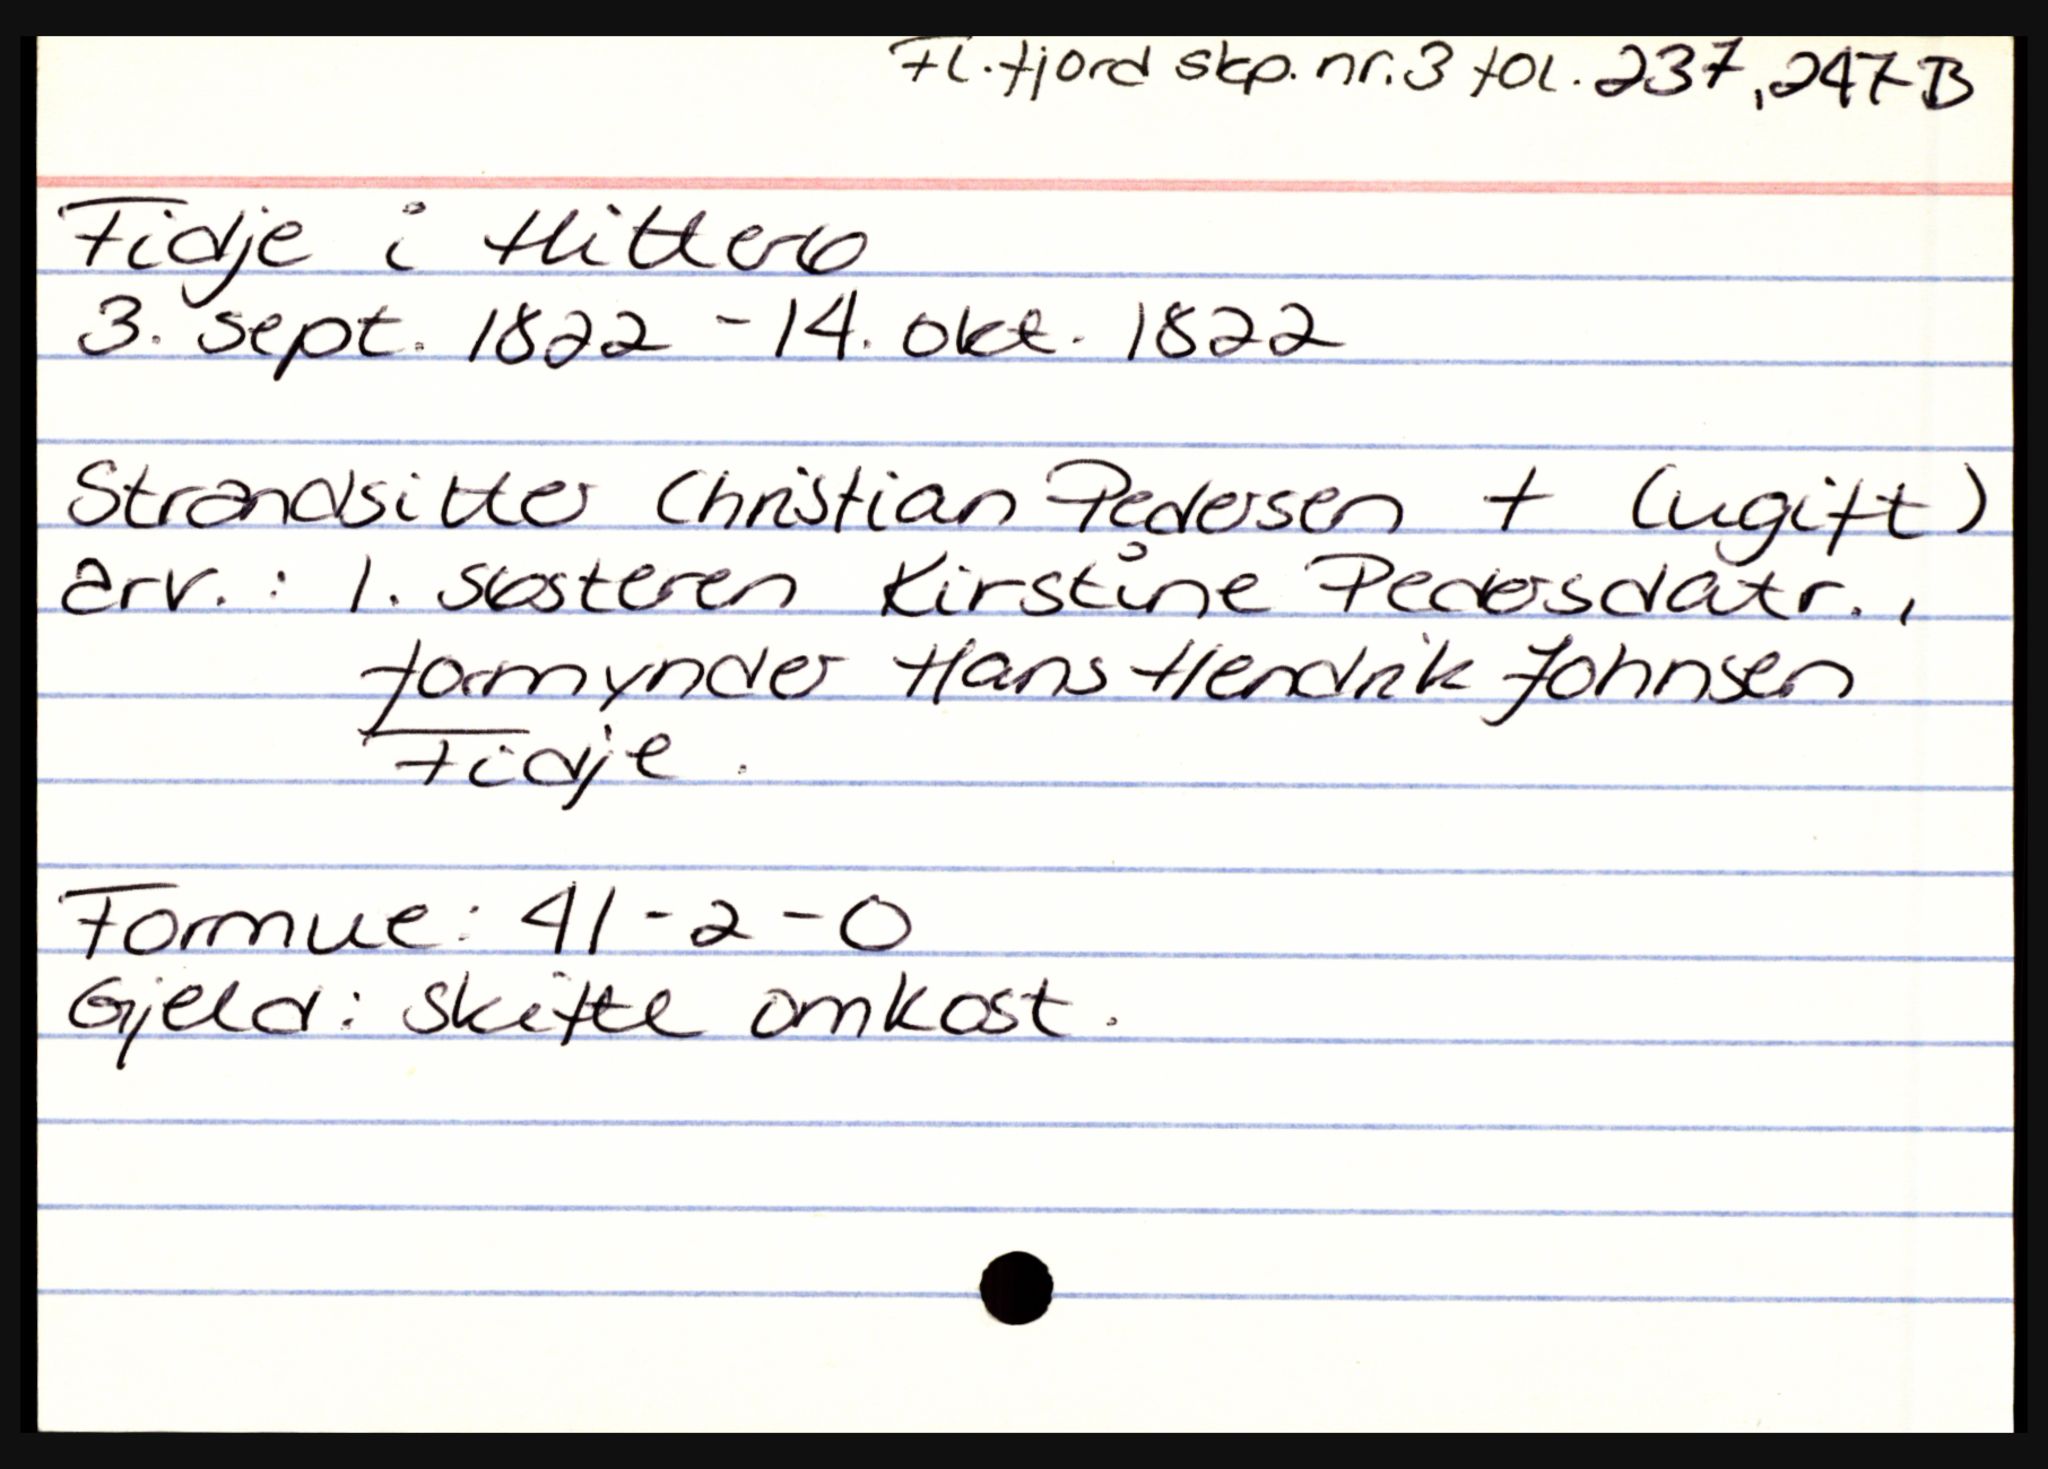 Fl.fjord skp. nr. 3 fol. 237, 247B
Fidje i Hitterø
3. sept. 1822 - 14. okt. 1822
Strandsitter Christian Pedersen † (ugift)
arv.: 1. søsteren Kirstine Pedersdatr.,
formynder Hans Hendrik Johnsen
Fidje.
Formue: 41-2-0
Gjeld: skifte omkost.